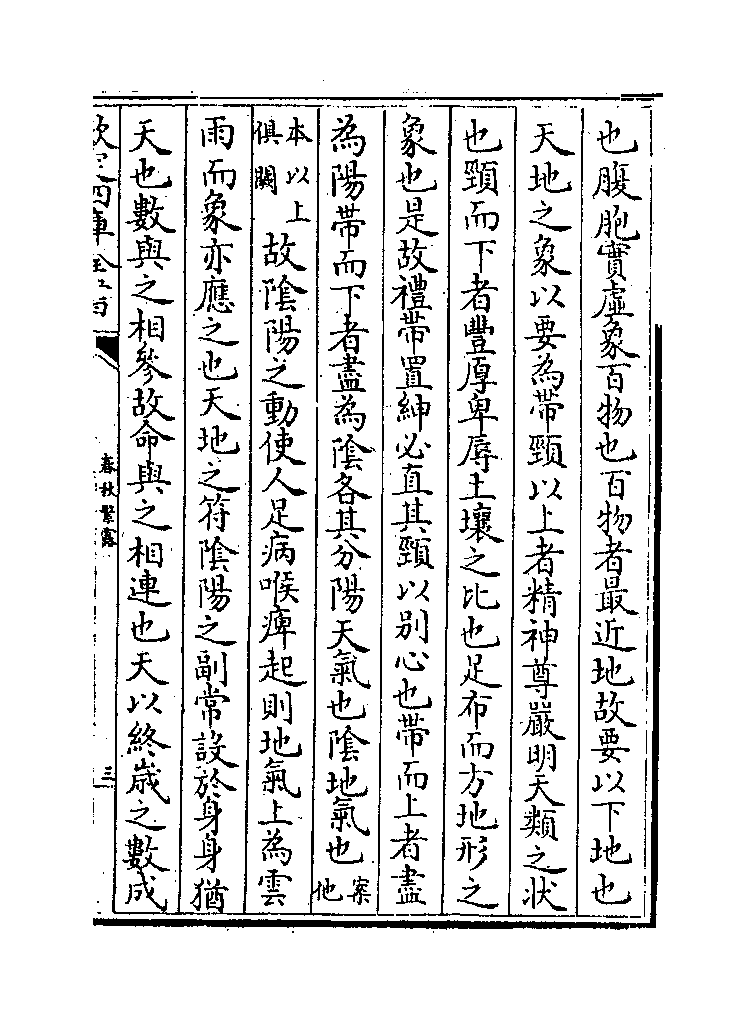 也腹胞實虛象百物也百物者最近地故要以下地也
天地之象以要為帶頸以上者精神尊嚴明天類之狀
也頸而下者豐厚卑辱土壤之比也足布而方地形之
象也是故禮帶置紳必直其頸以別心也帶而上者盡
為陽帶而下者盡為陰各其分陽天氣也陰地氣也案他
本以上俱闕故陰陽之動使人足病喉痺起則地氣上為雲
雨而象亦應之也天地之符陰陽之副常設於身身猶
天也數與之相參故命與之相連也天以終歲之數成
欽定四庫全書
春秋繁露
三